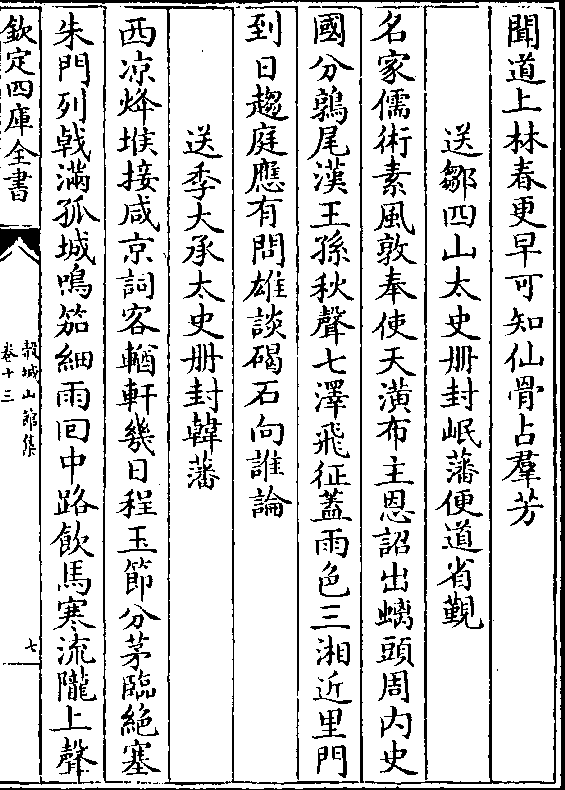 聞道上林春更早可知仙骨占羣芳
送鄒四山太史册封岷藩便道省覲
名家儒術素風敦奉使天潢布主恩詔出螭頭周内史
國分鶉尾漢王孫秋聲七澤飛征蓋雨色三湘近里門
到日趨庭應有問雄談碣石向誰論
送季大承太史册封韓藩
西凉烽堠接咸京詞客輶軒幾日程玉節分茅臨絶塞
朱門列㦸滿孤城鳴笳細雨囘中路飲馬寒流隴上聲
欽定四庫全書
榖城山館集
卷十三
七